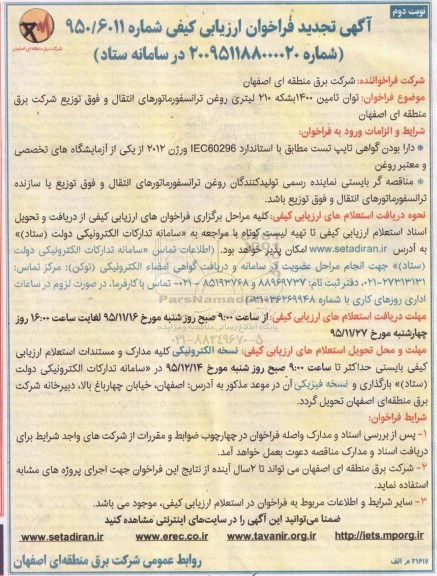 نوبت دوم
شرکت برق منطقه ای اصفهان
آگهی تجدید فراخوان ارزیابی کیفی شماره ۹۵۰/۶۰۱۱
(شماره ۲۰۰۹۵۱۱۸۸۰۰۰۰۲۰ در سامانه ستاد)
شرکت فراخواننده: شرکت برق منطقه ای اصفهان
موضوع فراخوان: توان تامین ۱۴۰۰بشکه ۲۱۰ لیتری روغن ترانسفورماتورهای انتقال و فوق توزیع شرکت برق
منطقه ای اصفهان
شرایط و الزامات ورود به فراخوان:
* دارا بودن گواهی تایپ تست مطابق با استاندارد IEC60296 ورژن ۲۰۱۲ از یکی از آزمایشگاه های تخصصی
و معتبر روغن
* مناقصه گر بایستی نماینده رسمی تولیدکنندگان روغن ترانسفورماتورهای انتقال و فوق توزیع یا سازنده
ترانسفورماتورهای انتقال و فوق توزیع باشد.
نحوه دریافت استعلام های ارزیابی کیفی: کلیه مراحل برگزاری فراخوان های ارزیابی کیفی از دریافت و تحویل
اسناد استعلام ارزیابی کیفی تا تهیه لیست کوتاه با مراجعه به «سامانه تدارکات الکترونیکی دولت (ستاد)»
به آدرس www.setadiran.ir امکان پذیر خواهد بود. (اطلاعات تماس «سامانه تدارکات الکترونیکی دولت
(ستاد)» جهت انجام مراحل عضویت در سامانه و دریافت گواهی امضاء الکترونیکی (توکن): مرکز تماس:
۲۷۳۱۳۱۳۱-۰۲۱، دفتر ثبت نام: ۸۸۹۶۹۷۳۷ و ۸۵۱۹۳۷۶۸ -۰۲۱، تماس با کارفرما، در صورت لزوم در ساعات
اداری روزهای کاری با شماره ۳۶۲۶۹۹۴۸-۰۳۱)
مهلت دریافت استعلام های ارزیابی کیفی: از ساعت ۹:۰۰ صبح روز شنبه مورخ ۹۵/۱۱/۱۶ لغایت ساعت ۱۶:۰۰ روز
چهارشنبه مورخ ۹۵/۱۱/۲۷
پایگاه اطلاع رسانی مناقصه و مزایده
۰۲۱-۸۸۳۴۹۶۷۰-۵
مهلت و محل تحویل استعلام های ارزیابی کیفی: نسخه الکترونیکی کلیه مدارک و مستندات استعلام ارزیابی
کیفی بایستی حداکثر تا ساعت ۹:۰۰ صبح روز شنبه مورخ ۹۵/۱۲/۱۴ در «سامانه تدارکات الکترونیکی دولت
(ستاد)» بارگذاری و نسخه فیزیکی آن در موعد مذکور به آدرس: اصفهان، خیابان چهارباغ بالا، دبیرخانه شرکت
برق منطقه‌ای اصفهان تحویل گردد.
شرایط فراخوان:
۱- پس از بررسی اسناد و مدارک واصله فراخوان در چهارچوب ضوابط و مقررات از شرکت های واجد شرایط برای
دریافت اسناد و مدارک مناقصه دعوت بعمل خواهد آمد.
۲- شرکت برق منطقه ای اصفهان می تواند تا ۲سال آینده از نتایج این فراخوان جهت اجرای پروژه های مشابه
استفاده نماید.
۳- سایر شرایط و اطلاعات مربوط به فراخوان در استعلام ارزیابی کیفی، موجود می باشد.
ضمنا می‌توانید این آگهی را در سایت‌های اینترنتی مشاهده کنید
www.setadiran.ir www.erec.co.ir www.tavanir.org.ir http://iets.mporg.ir
۲۱۶۱۷ م الف
روابط عمومی شرکت برق منطقه‌ای اصفهان